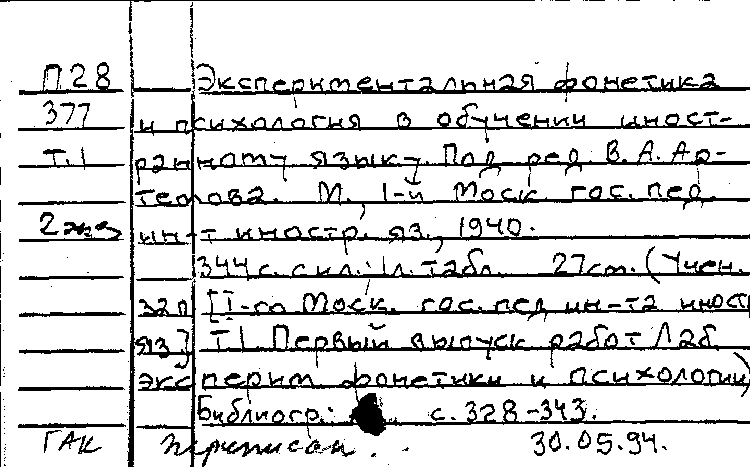 П28 Экспериментальная фонетика
377 и психология в обучении иност-
Т.1 ранному языку. Под ред. В. А. Ар-
темова. М., 1-й Моск. гос. пед.
2 экз ин-т иностр. яз., 1940.
344 с. с ил.; 1 л. табл. 27 см. (Учен.
зап [I-го Моск. гос. пед ин-та иностр
яз] Т.1. Первый выпуск работ Лаб.
эксперим фонетики и психологии)
Библиогр.: с. 328-343.
ГАК переписан . 30.05.94.